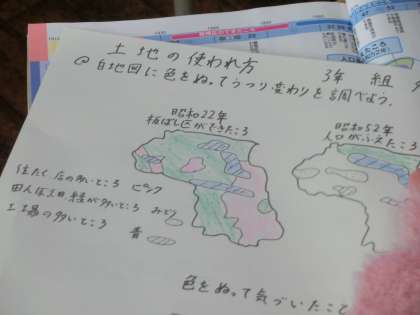 土地の使われ方
3年 組
@白地図に色をぬってうつり変わりを調べよう.
昭和22年
板ばし区ができたころ
昭和52年
人口がふえたころ
住たく店の多いところ ピンク
田んぼ畑 緑が多いところ みどり
工場の多いところ 青
色をぬって気づいたこと